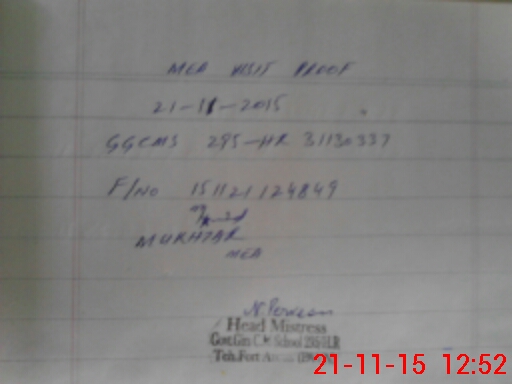 MEA VISIT PROOF
21-11-2015
GGCMS 295-HR 31130337
F/NO 151121124849
MUKHTAR
MEA
N. Perveen
Head Mistress
Govt. Girls C.M School 295/HR
Teh. Fort
21-11-15 12:52